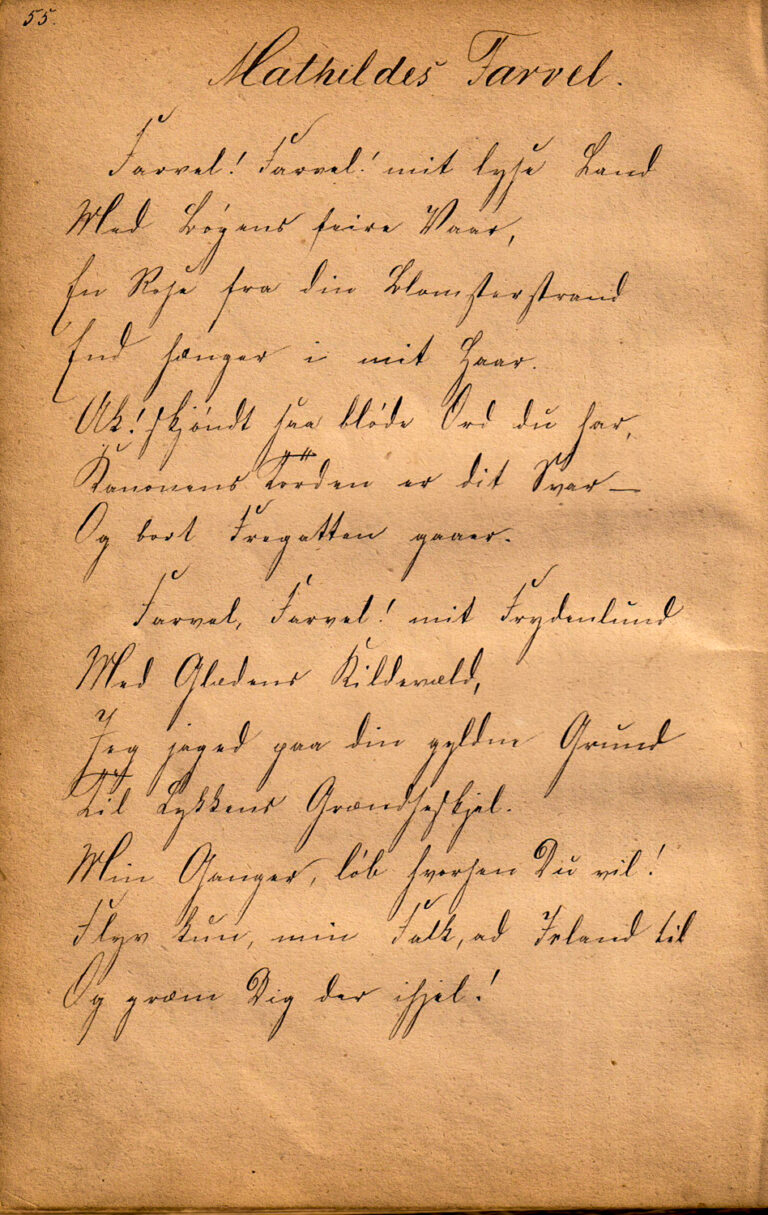 55.
Mathildes Farvel.
Farvel! Farvel! mit lyse Land
Med Bøgens feire Vaar,
En Rose fra din Blomsterstrand
End hænger i mit Haar.
Ak! skjøndt saa bløde Ord du har,
Kanonens Torden er dit Svar —
Og bort Fregatten gaaer.
Farvel, Farvel! mit Frydenlund
Med Glædens Kildevæld,
Jeg jaged paa din gyldne Grund
Til Lykkens Grændseskjel.
Min Ganger, løb hvorhen Du vil!
Flyv kun, min Falk, ad Island til
Og græm Dig der ihjel!